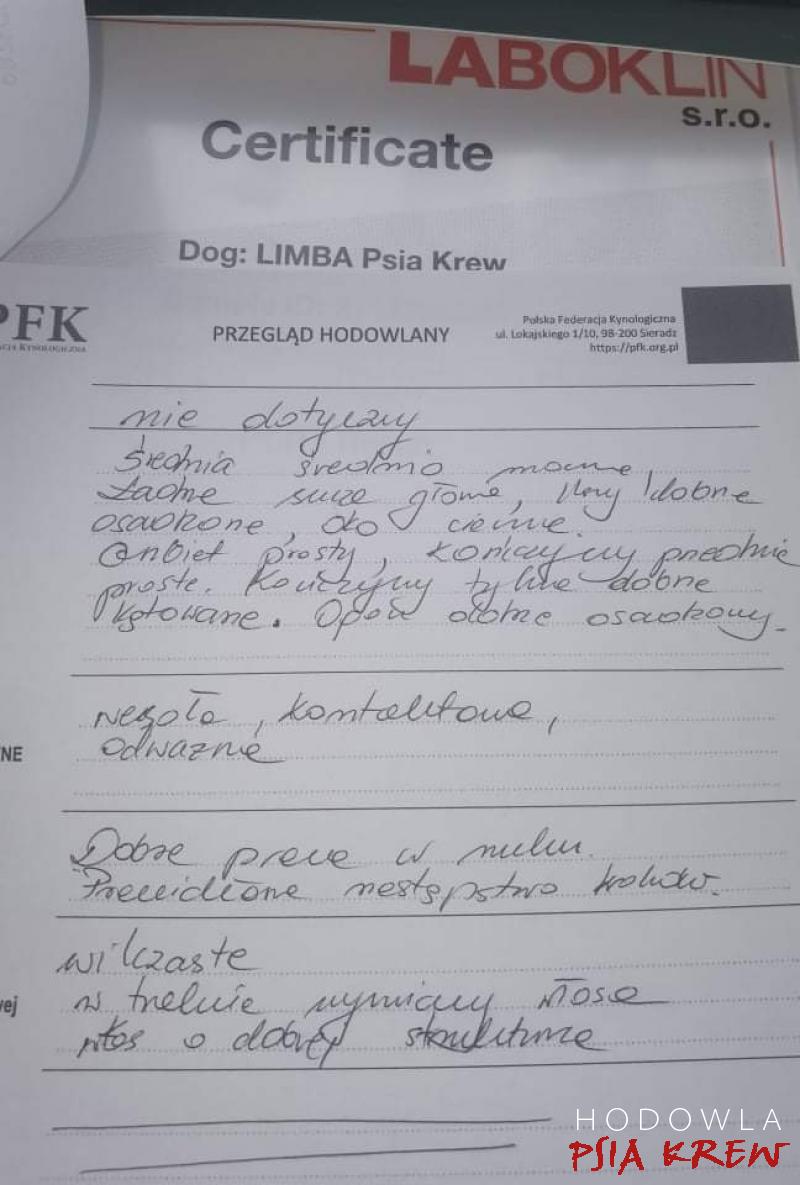 LABOKLIN
s.r.o.
Certificate
Dog: LIMBA Psia Krew
PFK
CJA KYNOLOGICZNA
PRZEGLĄD HODOWLANY
Polska Federacja Kynologiczna
ul. Lokajskiego 1/10, 98-200 Sieradz
https://pfk.org.pl
nie dotyczy
Średnia średnio mocna,
Ładne sucze głowa, uszy dobrze
osadzone, oko ciemne.
Grzbiet prosty, kończyny przednie
proste. Kończyny tylne dobrze
kątowane. Ogon dobrze osadzony.
wesoła, kontaktowa,
NE
odważna
Dobrze praca w ruchu.
Prawidłowe następstwo kroków.
wilczaste
wej
w trakcie wymiany włosa
włos o dobrej strukturze
HODOWLA
PSIA KREW